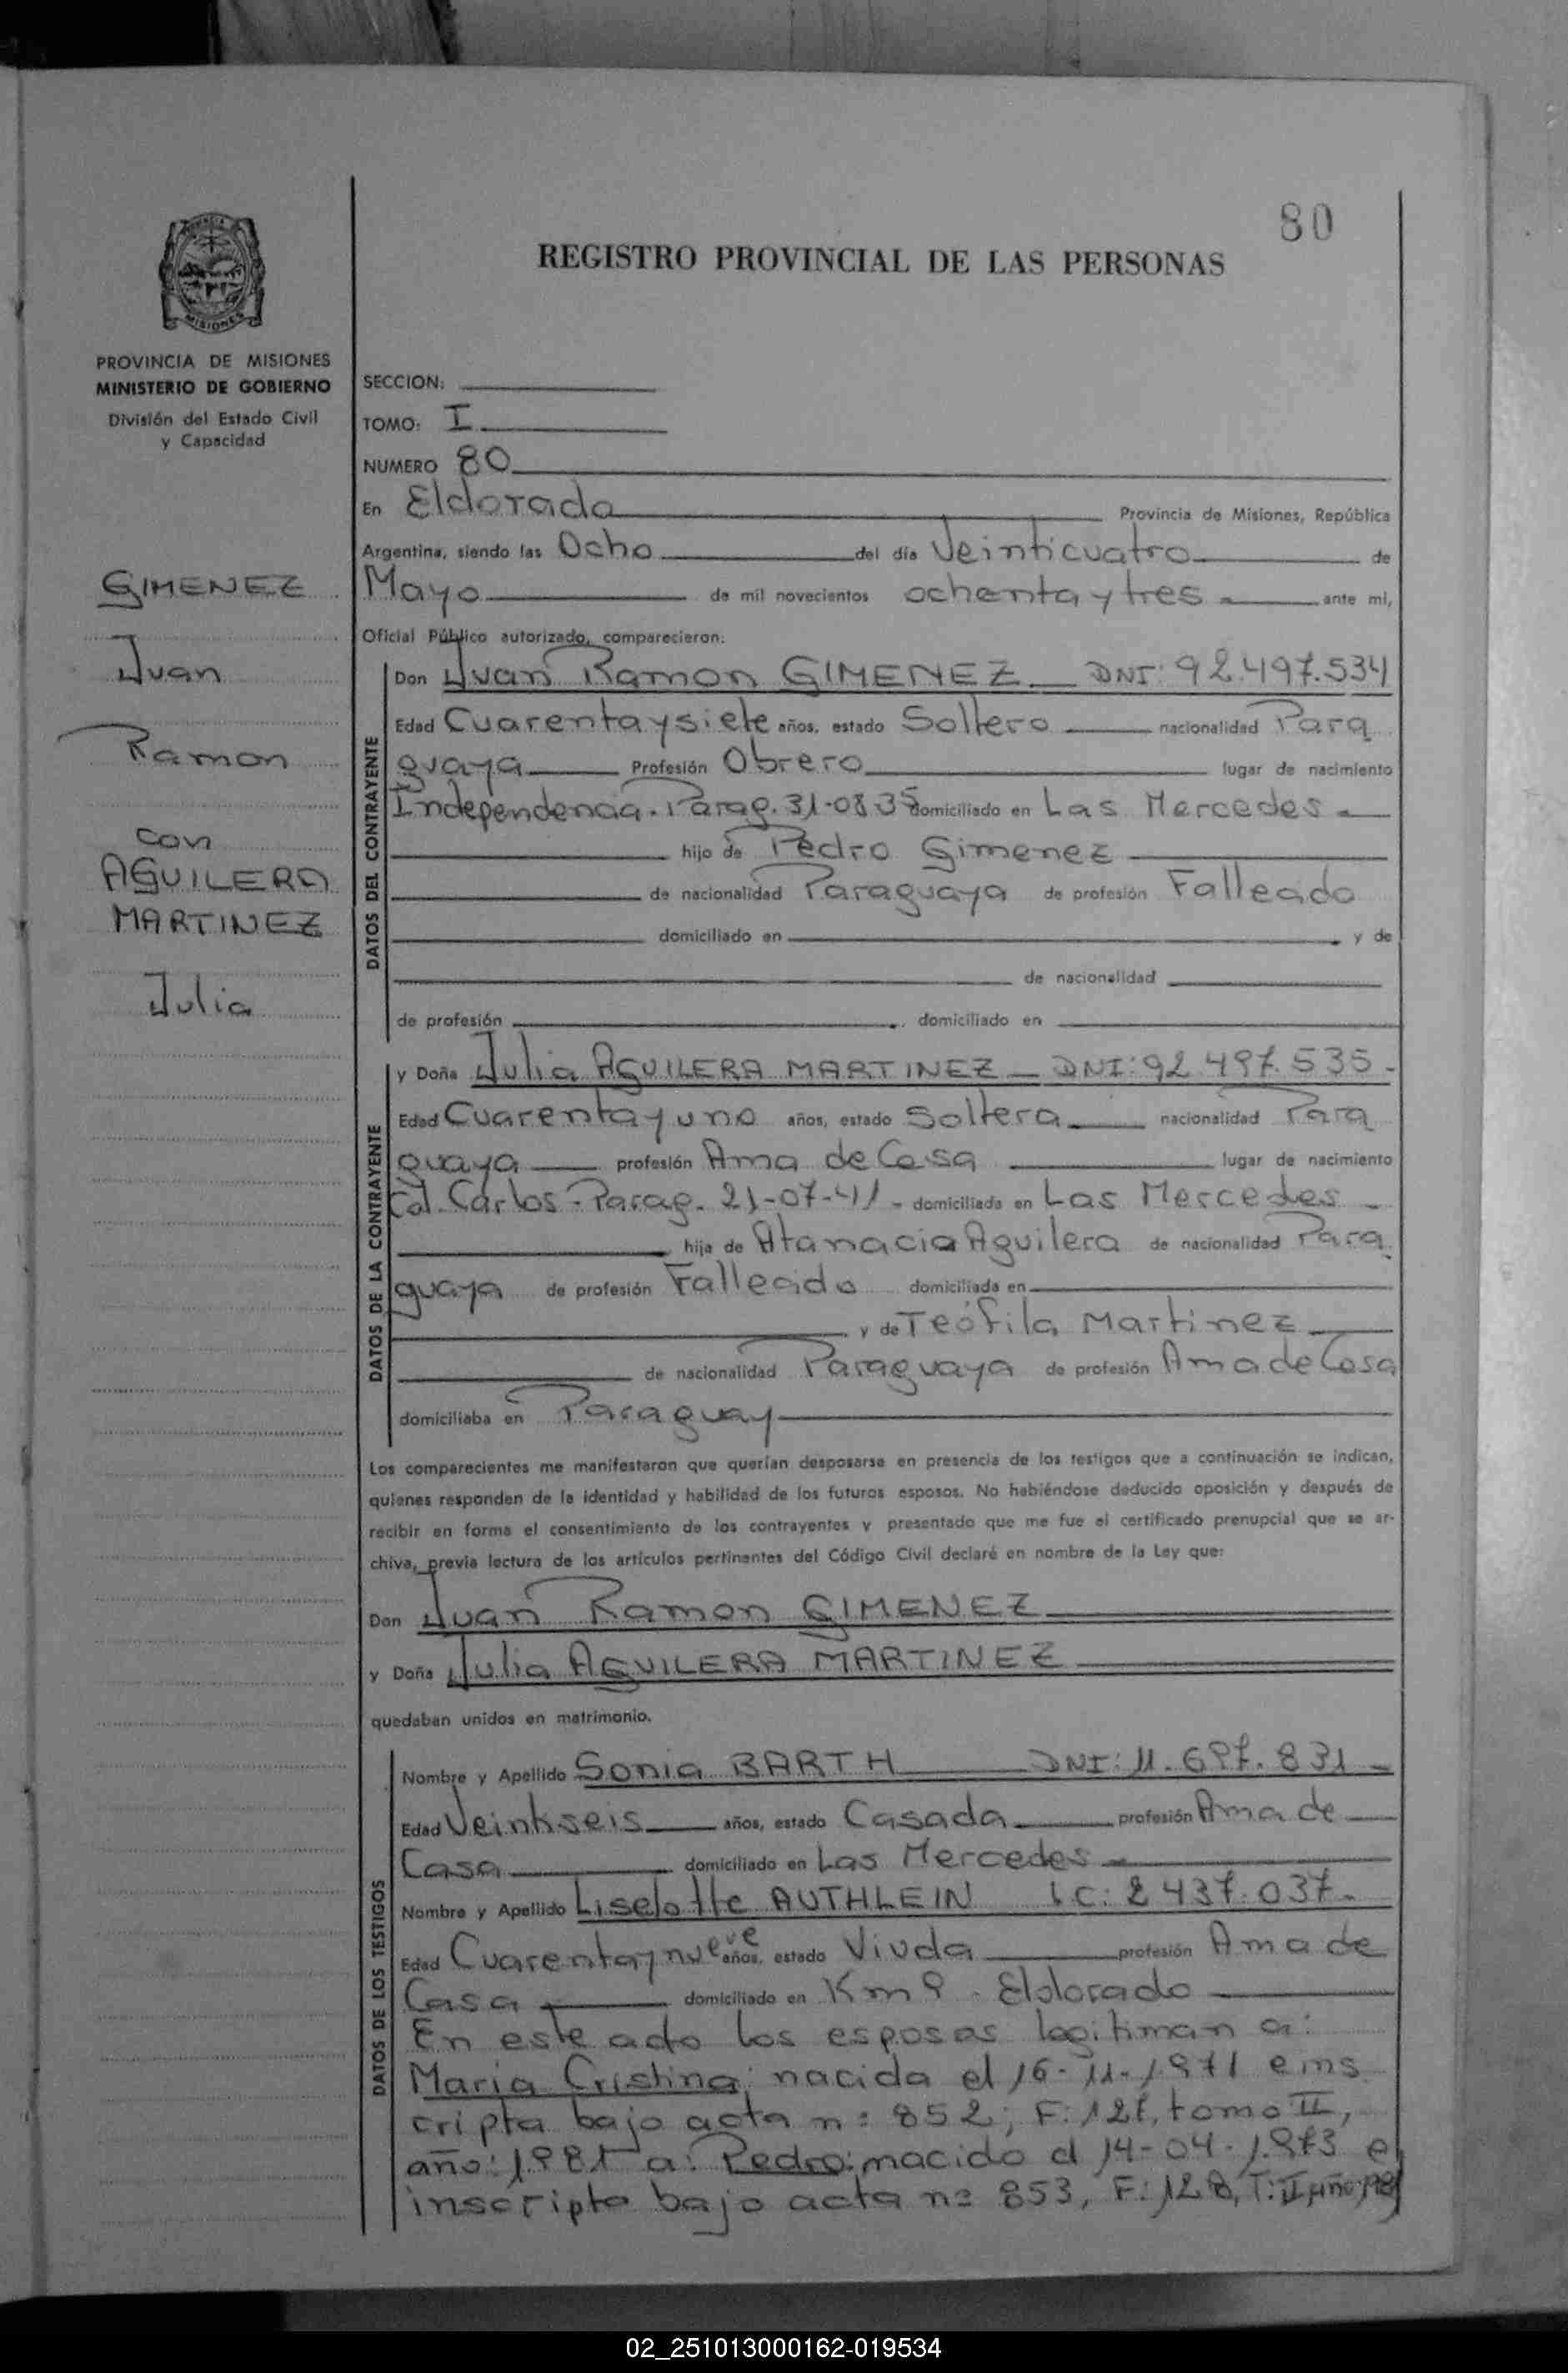 80
REGISTRO PROVINCIAL DE LAS PERSONAS
MISIONES
PROVINCIA DE MISIONES
MINISTERIO DE GOBIERNO
División del Estado Civil
y Capacidad
GIMENEZ
Juan
Ramon
con
AGUILERA
MARTINEZ
Julia
SECCION:
TOMO: I
NUMERO 80
En Eldorado Provincia de Misiones, República
Argentina, siendo las Ocho del día Veinticuatro de
Mayo de mil novecientos ochenta y tres ante mí,
Oficial Público autorizado, comparecieron:
DATOS DEL CONTRAYENTE
Don Juan Ramon GIMENEZ DNI: 92.497.534
Edad Cuarenta y siete años, estado Soltero nacionalidad Para
guaya Profesión Obrero lugar de nacimiento
Independencia. Parag. 31-08-35 domiciliado en Las Mercedes
hijo de Pedro Gimenez
de nacionalidad Paraguaya de profesión Fallecido
domiciliado en y de
de nacionalidad
de profesión domiciliado en
DATOS DE LA CONTRAYENTE
y Doña Julia AGUILERA MARTINEZ DNI: 92.497.535
Edad Cuarenta y uno años, estado Soltera nacionalidad Para
guaya profesión Ama de Casa lugar de nacimiento
Cal. Carlos - Parag. 21-07-41 - domiciliada en Las Mercedes
hija de Atanacia Aguilera de nacionalidad Para
guaya de profesión Fallecido domiciliada en
y de Teófila Martinez
de nacionalidad Paraguaya de profesión Ama de Casa
domiciliaba en Paraguay
Los comparecientes me manifestaron que querían desposarse en presencia de los testigos que a continuación se indican,
quienes responden de la identidad y habilidad de los futuros esposos. No habiéndose deducido oposición y después de
recibir en forma el consentimiento de los contrayentes y presentado que me fue el certificado prenupcial que se ar-
chiva, previa lectura de los artículos pertinentes del Código Civil declaré en nombre de la Ley que:
Don Juan Ramon GIMENEZ
y Doña Julia AGUILERA MARTINEZ
quedaban unidos en matrimonio.
DATOS DE LOS TESTIGOS
Nombre y Apellido Sonia BARTH DNI: 11.697.831
Edad Veintiseis años, estado Casada profesión Ama de
Casa domiciliado en Las Mercedes
Nombre y Apellido Liselotte AUTHLEIN LC: 2437.037
Edad Cuarenta y nueve años, estado Viuda profesión Ama de
Casa domiciliado en Km 9 - Eldorado
En este acto los esposos legitiman a:
Maria Cristina: nacida el 16-11-1971 e ins
cripta bajo acta nº 852; F: 127, tomo II,
año: 1981 a: Pedro: nacido el 14-04-1973 e
inscripto bajo acta nº 853, F: 128, T: II año 1981
02_251013000162-019534